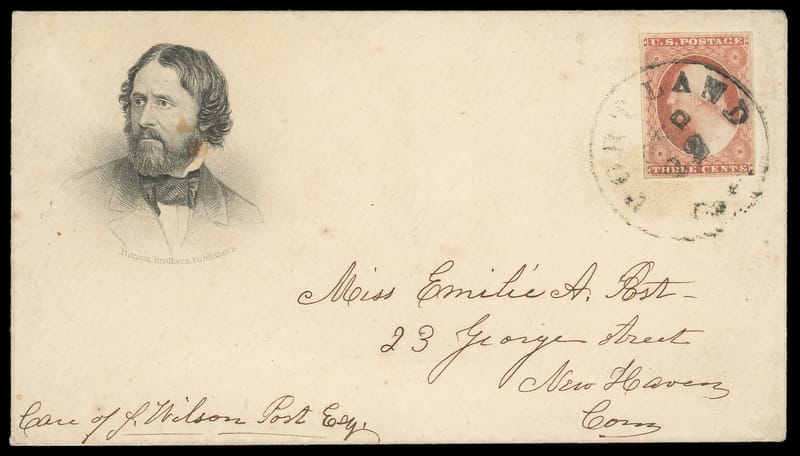 U.S. POSTAGE
THREE CENTS
PORTLAND Ct.
Putnam Brothers, Publishers.
Miss Emilié A. Post -
23 George Street
New Haven
Conn
Care of J. Wilson Post Esq.